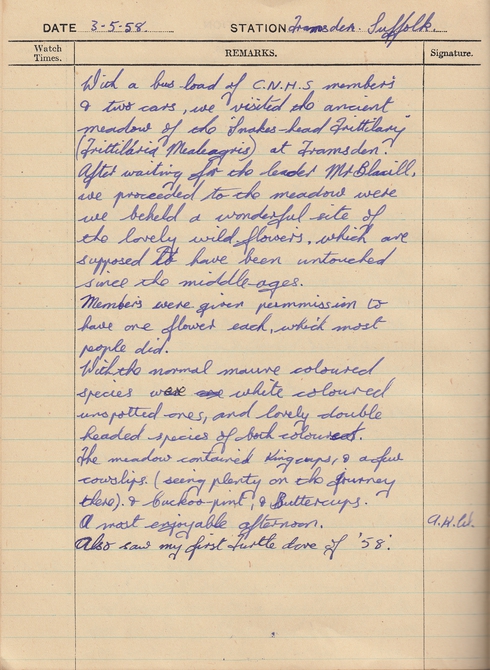 DATE 3-5-58. STATION Framsden. Suffolk.
Watch Times. REMARKS. Signature.
With a bus load of C.N.H.S members
& two cars, we visited the ancient
meadow of the "Snakes-head Frittilary"
(Frittilaria Mealeagris) at Framsden.
After waiting for the leader Mr Blaxill,
we proceeded to the meadow were
we beheld a wonderful site of
the lovely wild flowers, which are
supposed to have been untouched
since the middle-ages.
Members were given permmission to
have one flower each, which most
people did.
With the normal mauve coloured
species were white coloured
unspotted ones, and lovely double
headed species of both colours.
The meadow contained Kingcups, & a few
cowslips. (seeing plenty on the journey
there). & Cuckoo-pint, & Buttercups.
A most enjoyable afternoon. A.H.W.
Also saw my first Turtle dove of '58.